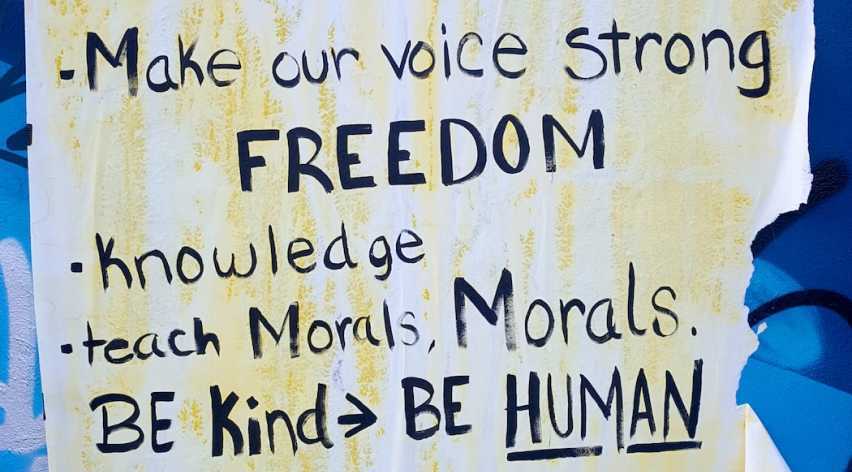 ·Make our voice strong
FREEDOM
·Knowledge
·teach Morals, Morals.
BE Kind→ BE HUMAN